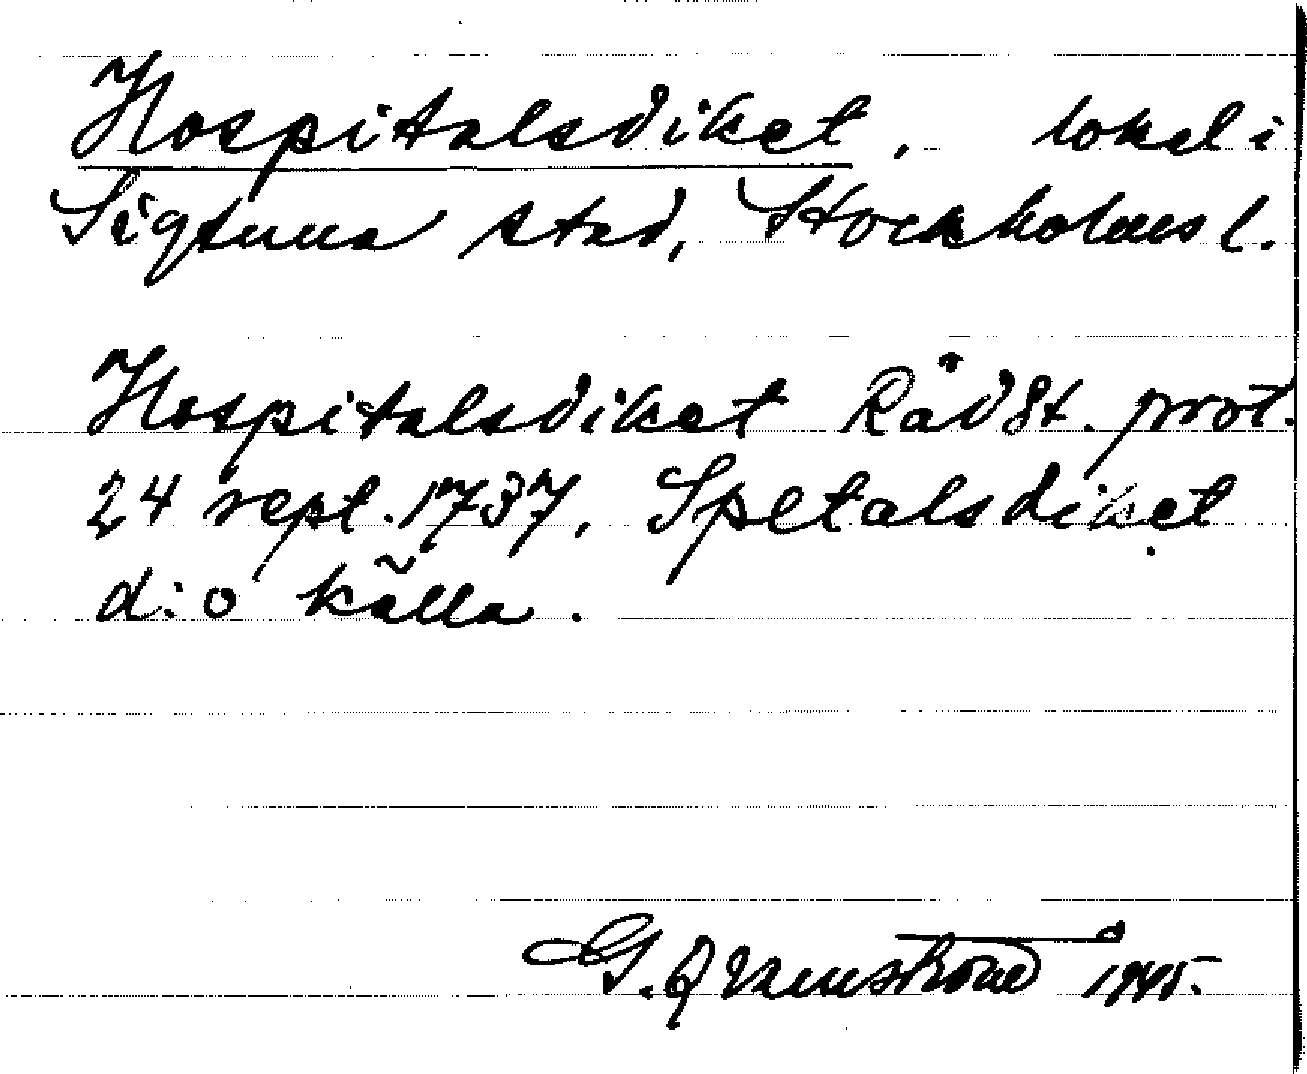 Hospitalsdiket, lokal i
Sigtuna stad, Stockholms l.
Hospitalsdiket Rådst. prot.
24 sept. 1737, Spetalsdiket
d:o källa.
G. Qvarnström 1945.